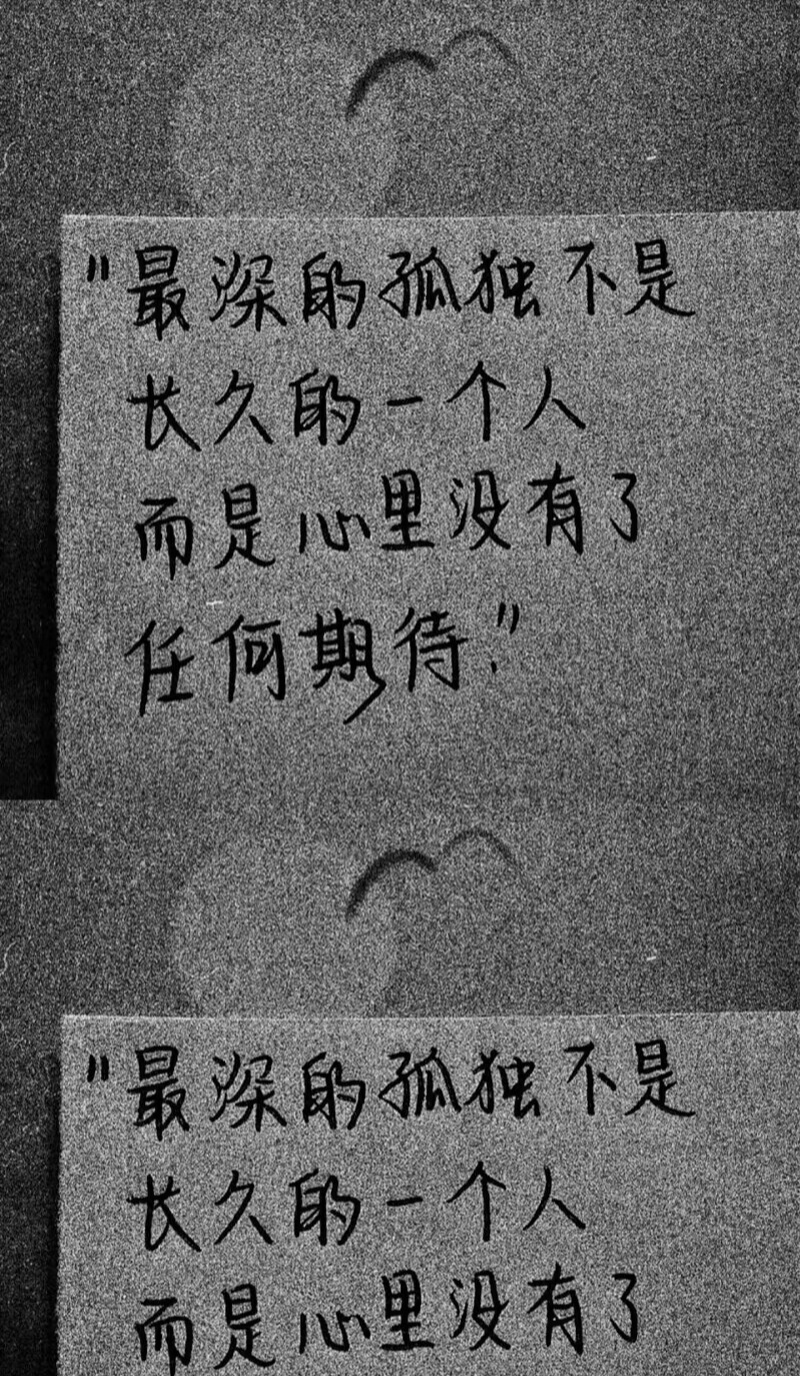 "最深的孤独不是
长久的一个人
而是心里没有了
任何期待."
"最深的孤独不是
长久的一个人
而是心里没有了